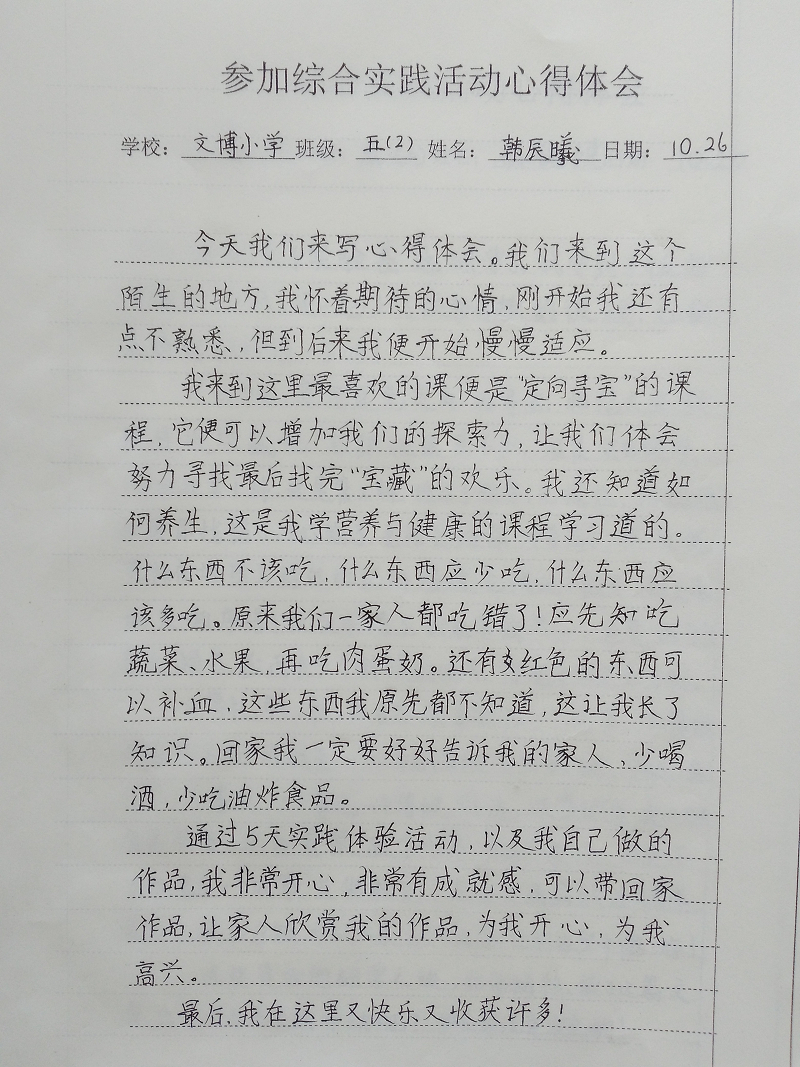 参加综合实践活动心得体会
学校：文博小学 班级：五(2) 姓名：韩辰曦 日期：10.26
今天我们来写心得体会。我们来到这个
陌生的地方，我怀着期待的心情，刚开始我还有
点不熟悉，但到后来我便开始慢慢适应。
我来到这里最喜欢的课便是“定向寻宝”的课
程，它便可以增加我们的探索力，让我们体会
努力寻找最后找完“宝藏”的欢乐。我还知道如
何养生，这是我学营养与健康的课程学习道的。
什么东西不该吃，什么东西应少吃，什么东西应
该多吃。原来我们一家人都吃错了！应先知吃
蔬菜、水果，再吃肉蛋奶。还有红色的东西可
以补血，这些东西我原先都不知道，这让我长了
知识。回家我一定要好好告诉我的家人，少喝
酒，少吃油炸食品。
通过5天实践体验活动，以及我自己做的
作品，我非常开心，非常有成就感，可以带回家
作品，让家人欣赏我的作品，为我开心，为我
高兴。
最后，我在这里又快乐又收获许多！